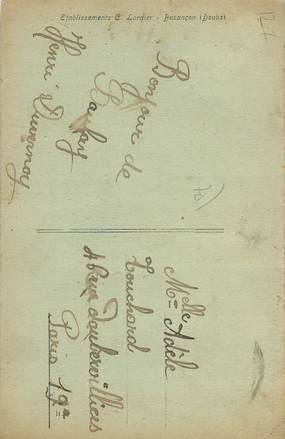 Etablissements C. Lardier - Besançon (Doubs)
Bonjour de
Henri Duvernoy
Melle Adèle
Touchard
Rue d'aubervilliers
Paris 19e